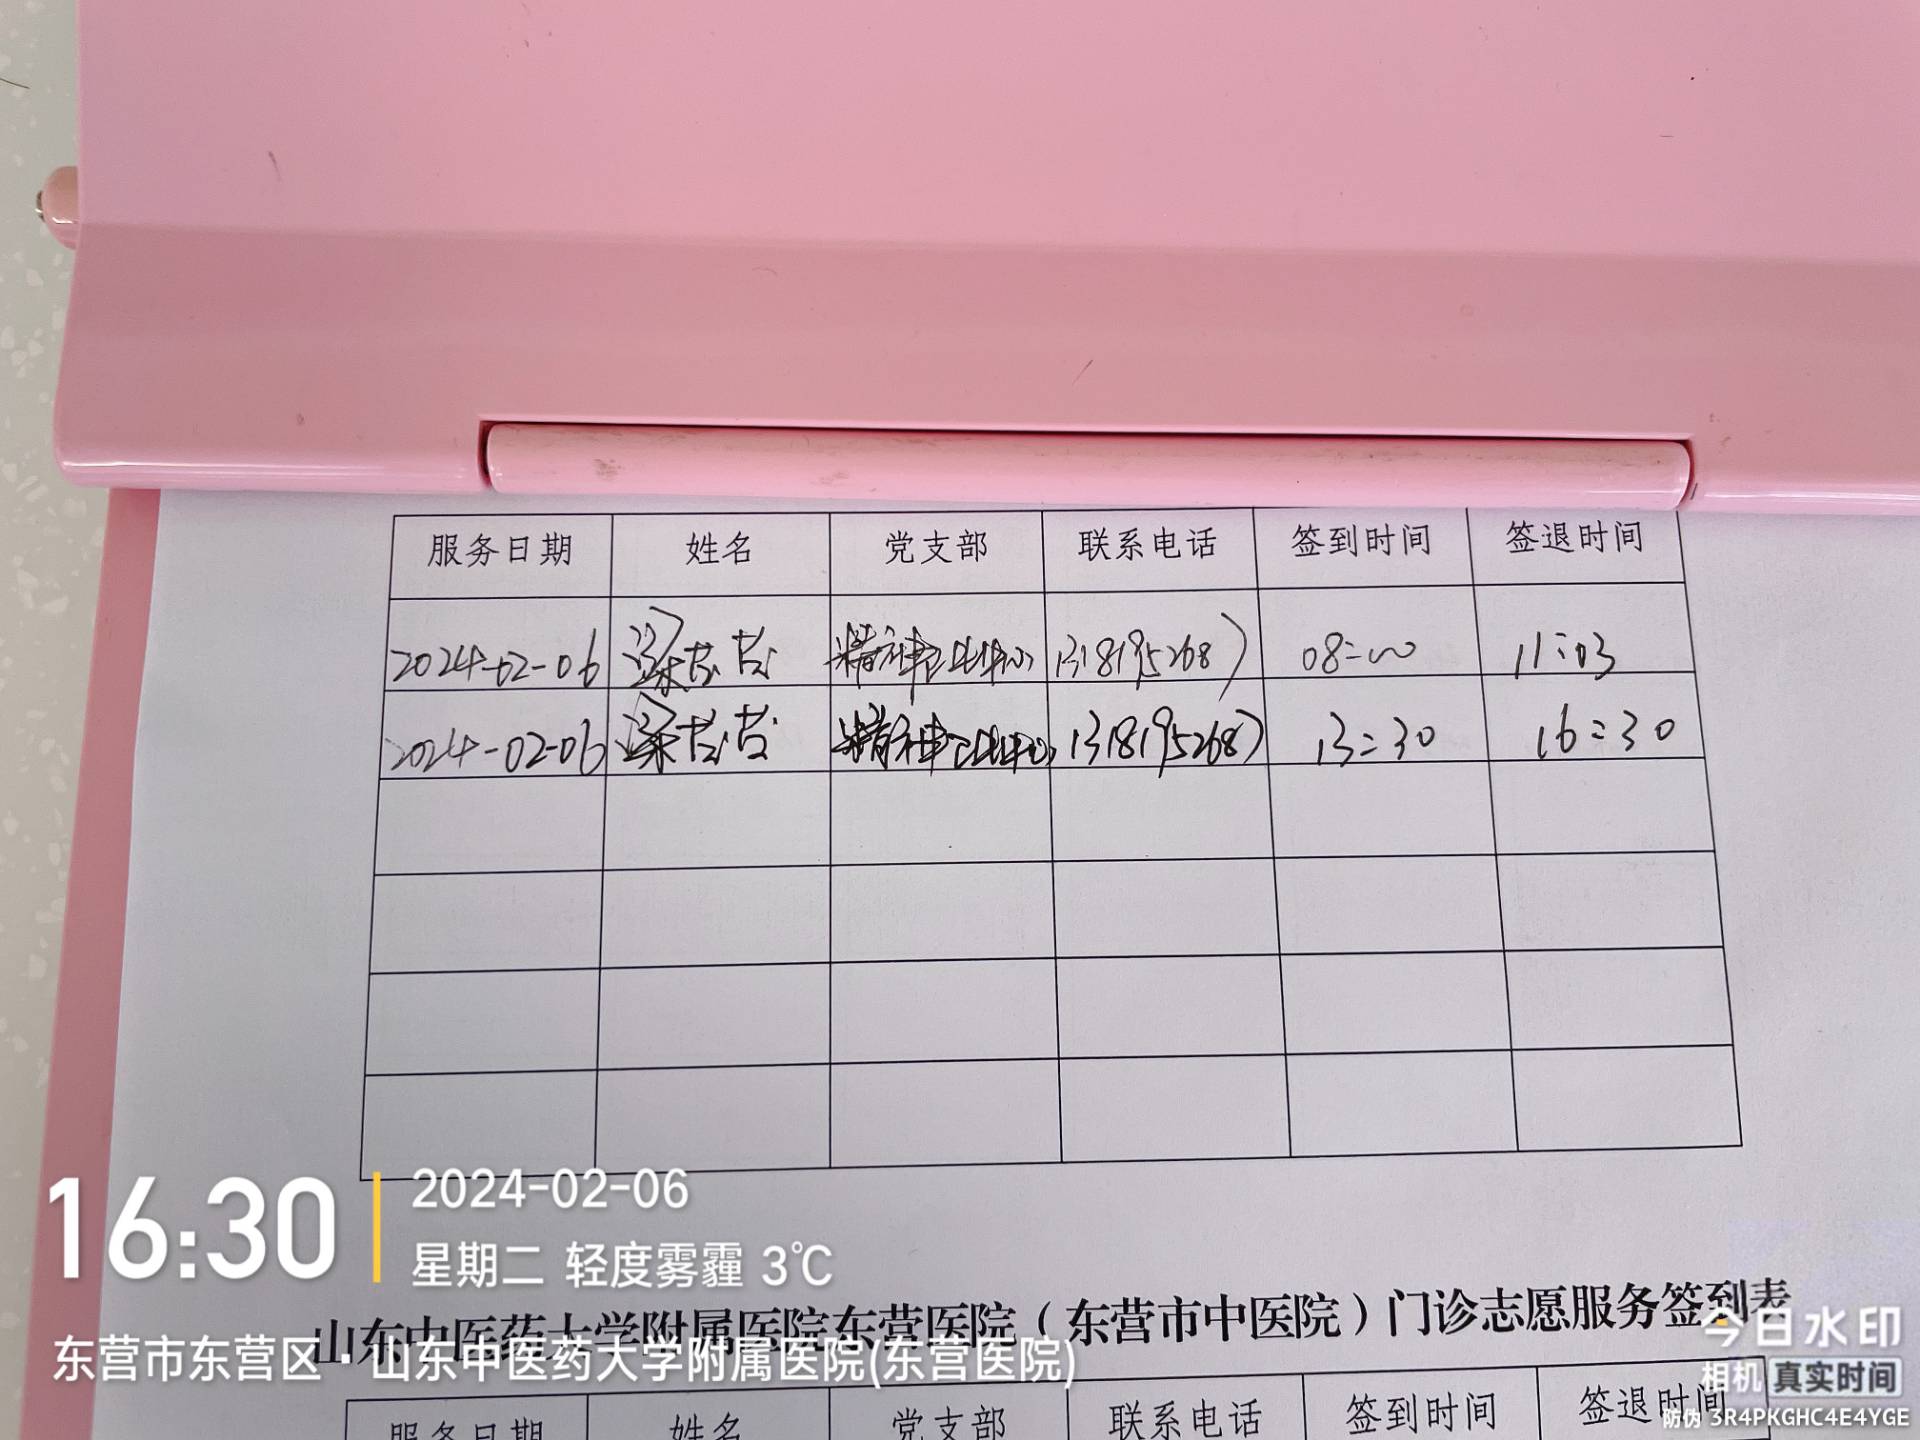 服务日期 姓名 党支部 联系电话 签到时间 签退时间
2024-02-06 梁 精神 中心 13181952687 08:00 11:03
2024-02-06 梁 精神 中心 13181952687 13:30 16:30
16:30 2024-02-06
星期二 轻度雾霾 3℃
山东中医药大学附属医院东营医院（东营市中医院）门诊志愿服务签到表
东营市东营区·山东中医药大学附属医院(东营医院)
今日水印
相机 真实时间
防伪 3R4PKGHC4E4YGE
服务日期 姓名 党支部 联系电话 签到时间 签退时间